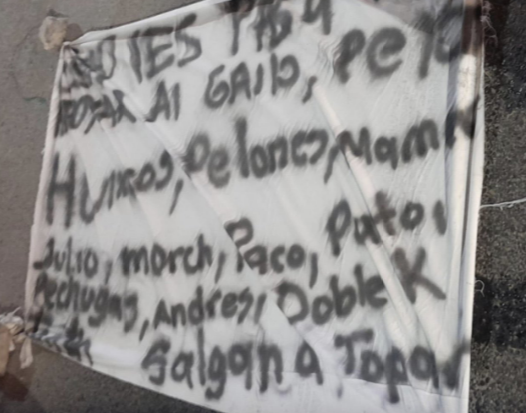 IES PASA
APOYAR AI GAIIO, PERO
HUIXOS, Pelones, Mama
Julio, march, Paco, Pato,
Pechugas, Andres, Doble K
Salgan a Topar